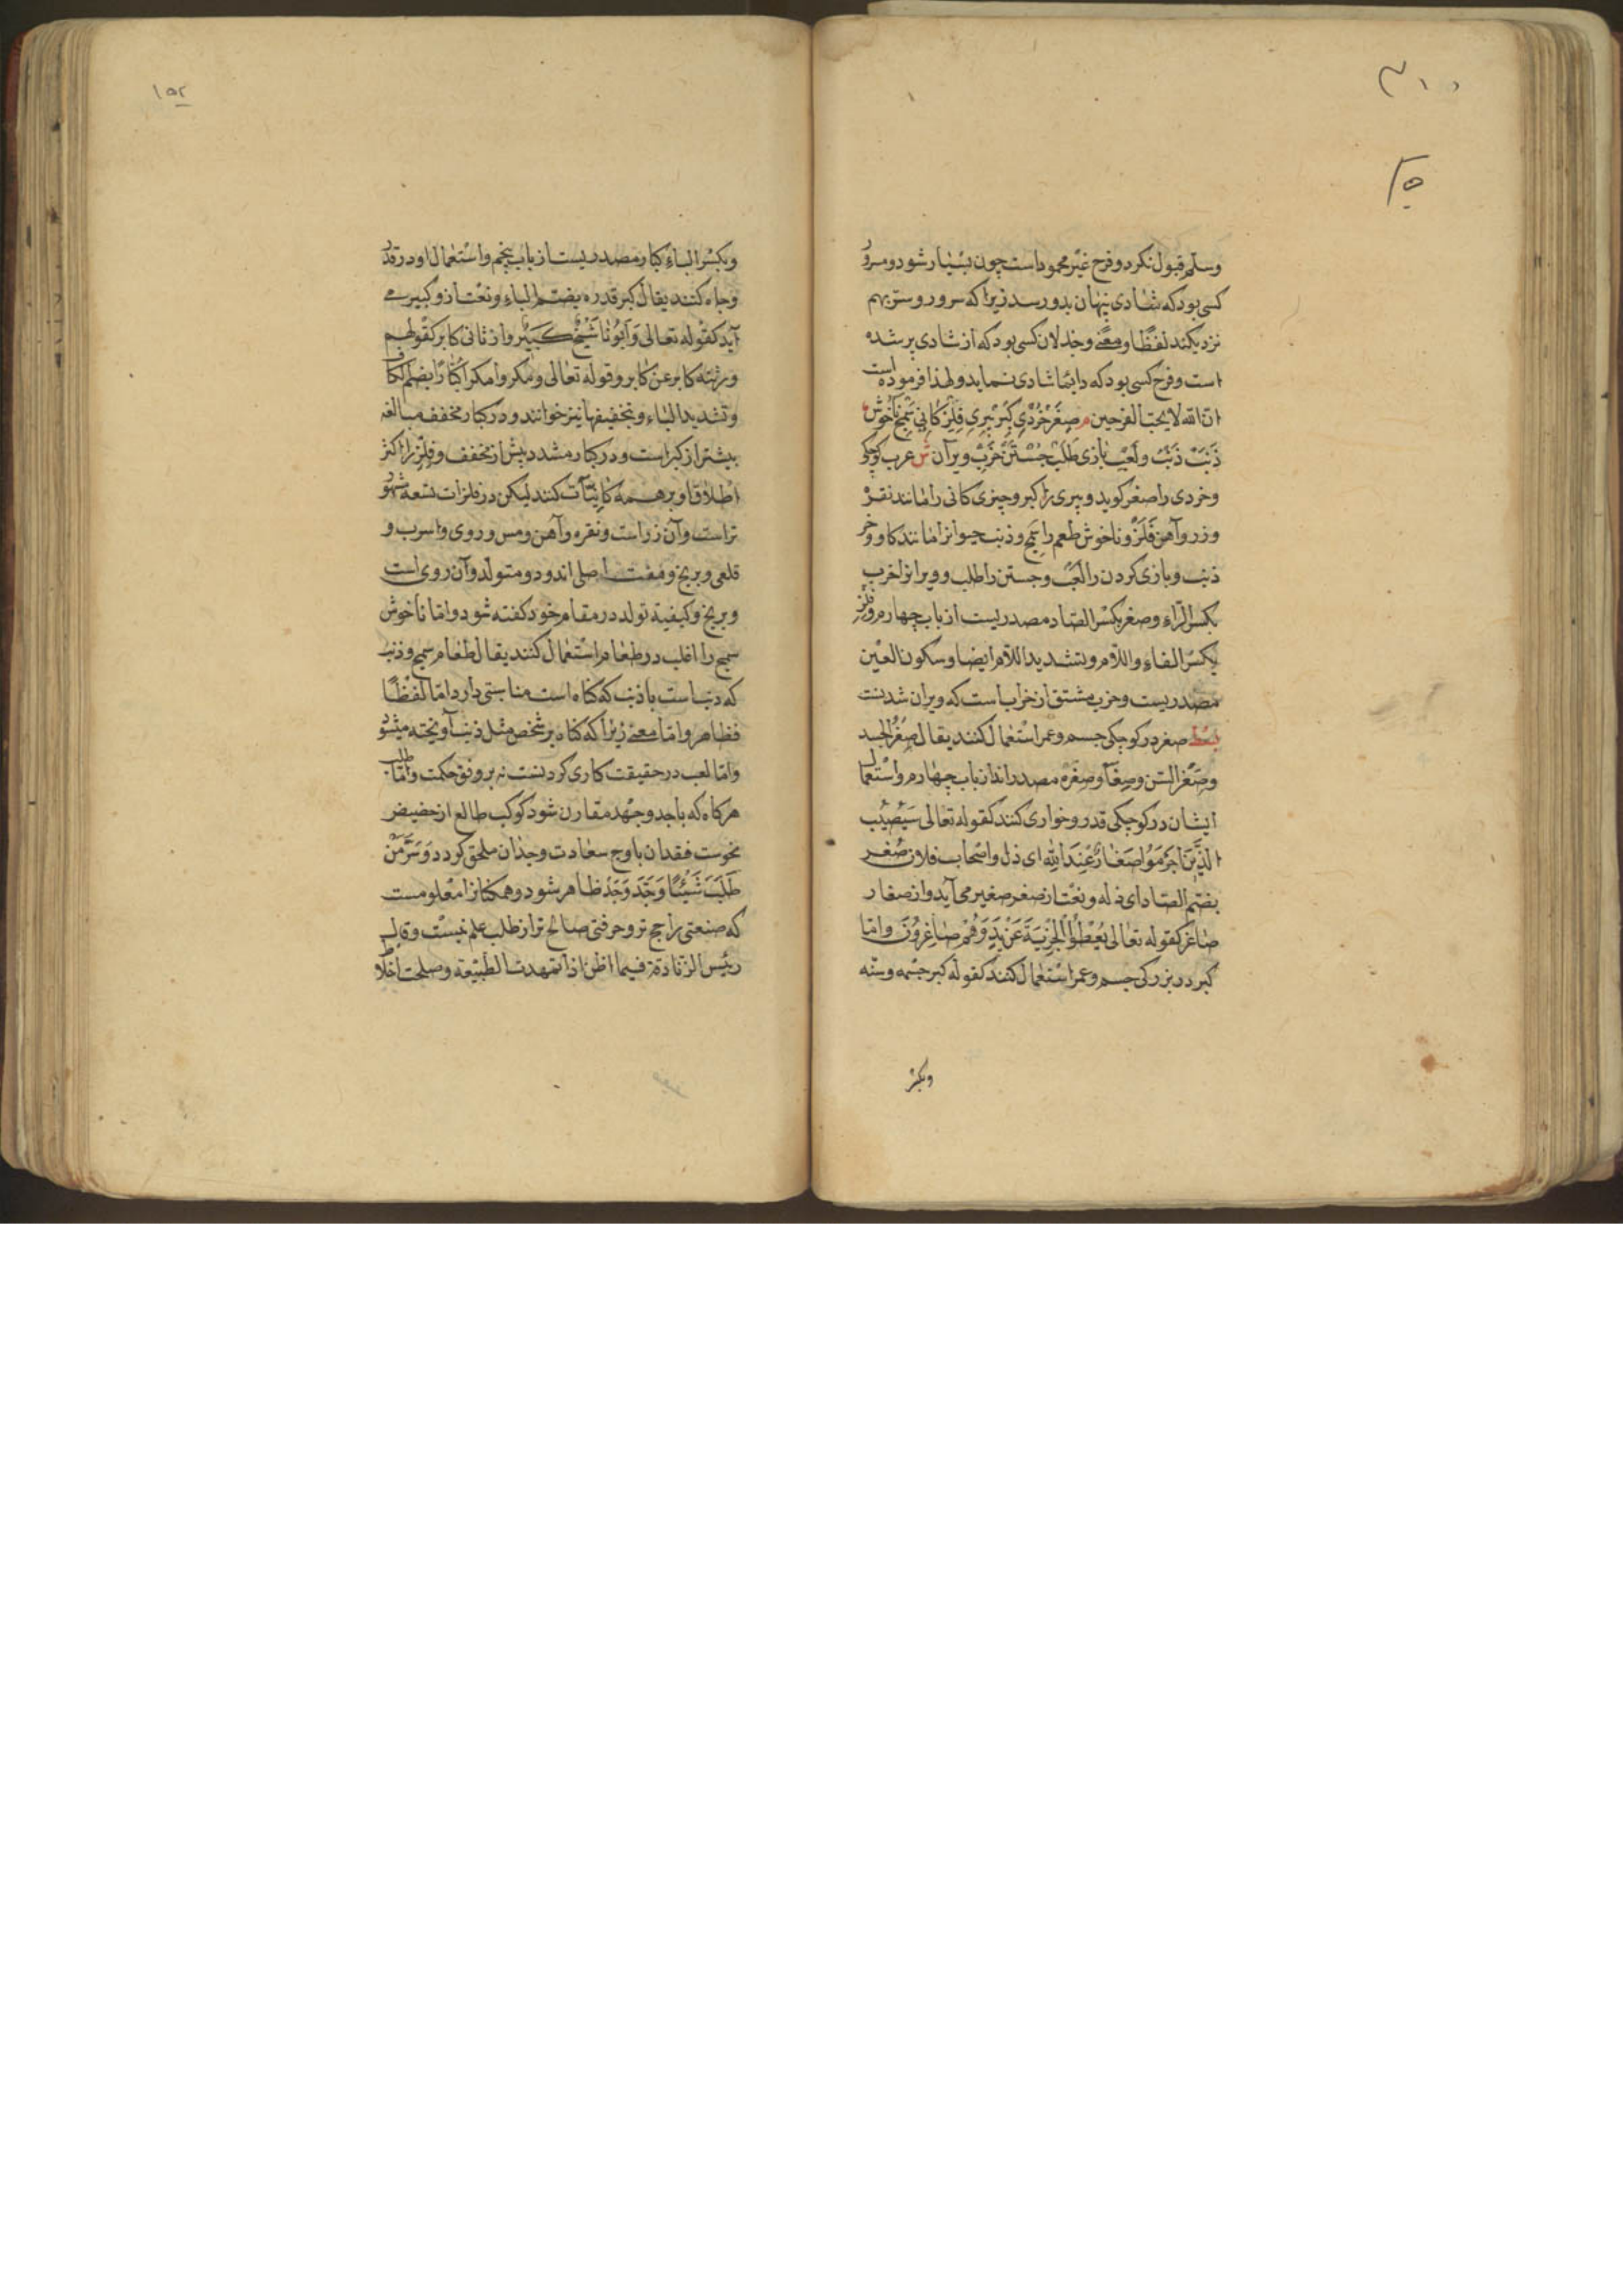 وسلم قبول نکرد و فرح غیر محمود است چون بسیار شود و مسرور
کسی بود که شادی پنهان بدو رسد زیرا که سرور و ستر بهم
نزدیکند لفظًا و معنی و جذلان کسی بود که از شادی پر شده
است و فرح کسی بود که دایما شادی نماید و لهذا فرموده است
ان الله لا یحب الفرحین م صِغَر خُرْدی کِبَر پیری فِلِز کانی سَمِج ناخوش
ذَنَبْ ذَنَبْ و لَعِب بازی طَلَبْ جُسْتَنْ خَرِبْ ویران ش عرب کوچکی
و خردی را صغر کوید و پیری را کبر و چیزی کانی را مانند نقره
و زر و آهن فلز و ناخوش طعم را سمج و ذنب حیوانرا مانند کاو و خر
ذنب و بازی کردن را لعب و جستن را طلب و ویرانرا خرب
بکسر الراء و صغر بکسر الصاد مصدریست از باب چهارم و فلز
بکسر الفاء و اللام و بتشدید اللام ایضا و سکون العین
مصدریست و خرب مشتق از خراب است که ویران شدنست
بسط صغر در کوچکی جسم و عمر استعمال کنند یقال صغر الجسد
و صغر السن و صغًا و صغره مصدراند از باب چهارم و استعمال
ایشان در کوچکی قدر و خواری کنند کقوله تعالی سَیُصِیْبُ
الَّذِیْنَ اَجْرَمُوا صَغَارٌ عِنْدَ اللهِ ای ذل و اصحاب فلان صُغر
بضم الصاد ای ذله و نعت از صغر صغیر می آید و از صغار
صاغر کقوله تعالی یُعْطُوا الْجِزْیَةَ عَنْ یَدٍ وَهُمْ صَاغِرُوْنَ و اما
کبر در بزرکی جسم و عمر استعمال کنند کقوله کبر جسمه و سنه
وبکسر
۱۵۲
و بکسر الباء کبار مصدریست از باب پنجم و استعمال او در قدر
و جاه کنند یقال کبر قدره بضم الباء و نعت از و کبیر می
آید کقوله تعالی وَ اَبُوْنَا شَیْخٌ کَبِیْرٌ و از ثانی کابر کقولهم
ورثته کابر عن کابر و قوله تعالی و مکروا مکرا کبّارًا بضم الکاف
و تشدید الباء و بتخفیفها نیز خوانند و در کبار مخفف مبالغه
بیشتر از کبر است و در کبار مشدد بیش از مخفف و فلز را اکثر
اطلاق او بر همه کانیّات کنند لیکن در فلزات تسعه مشهور
تر است و آن زر است و نقره و آهن و مس و روی و اسرب و
قلعی و برنج و هفت اصلی اند و دو متولد و آن روی است
و برنج و کیفیة تولد در مقام خود کفته شود و اما ناخوش
سمج را اغلب در طعام استعمال کنند یقال طعام سمج و ذنب
که دنب است با ذنب که کناه است مناسبتی دارد اما لفظًا
فظاهر و اما معنی زیرا که کناه بر شخص مثل ذنب آویخته میشود
و اما لعب در حقیقت کاری کردنست نه بر وفق حکمت و اما طلب
هرکاه که با جد و جهد مقارن شود کوکب طالع از حضیض
نحوست فقدان باوج سعادت وجدان ملحق کردد وَ سِرّ مَنْ
طَلَبَ شَیْئًا وَ جَدَّ وَجَدَ ظاهر شود و همکنانرا معلومست
که صنعتی راجح تر و حرفتی صالح تر از طلب علم نیست و قال
رئیس الزنادقة فیما اظن اذا تمهدت الطبیعة و صلحت اخلا